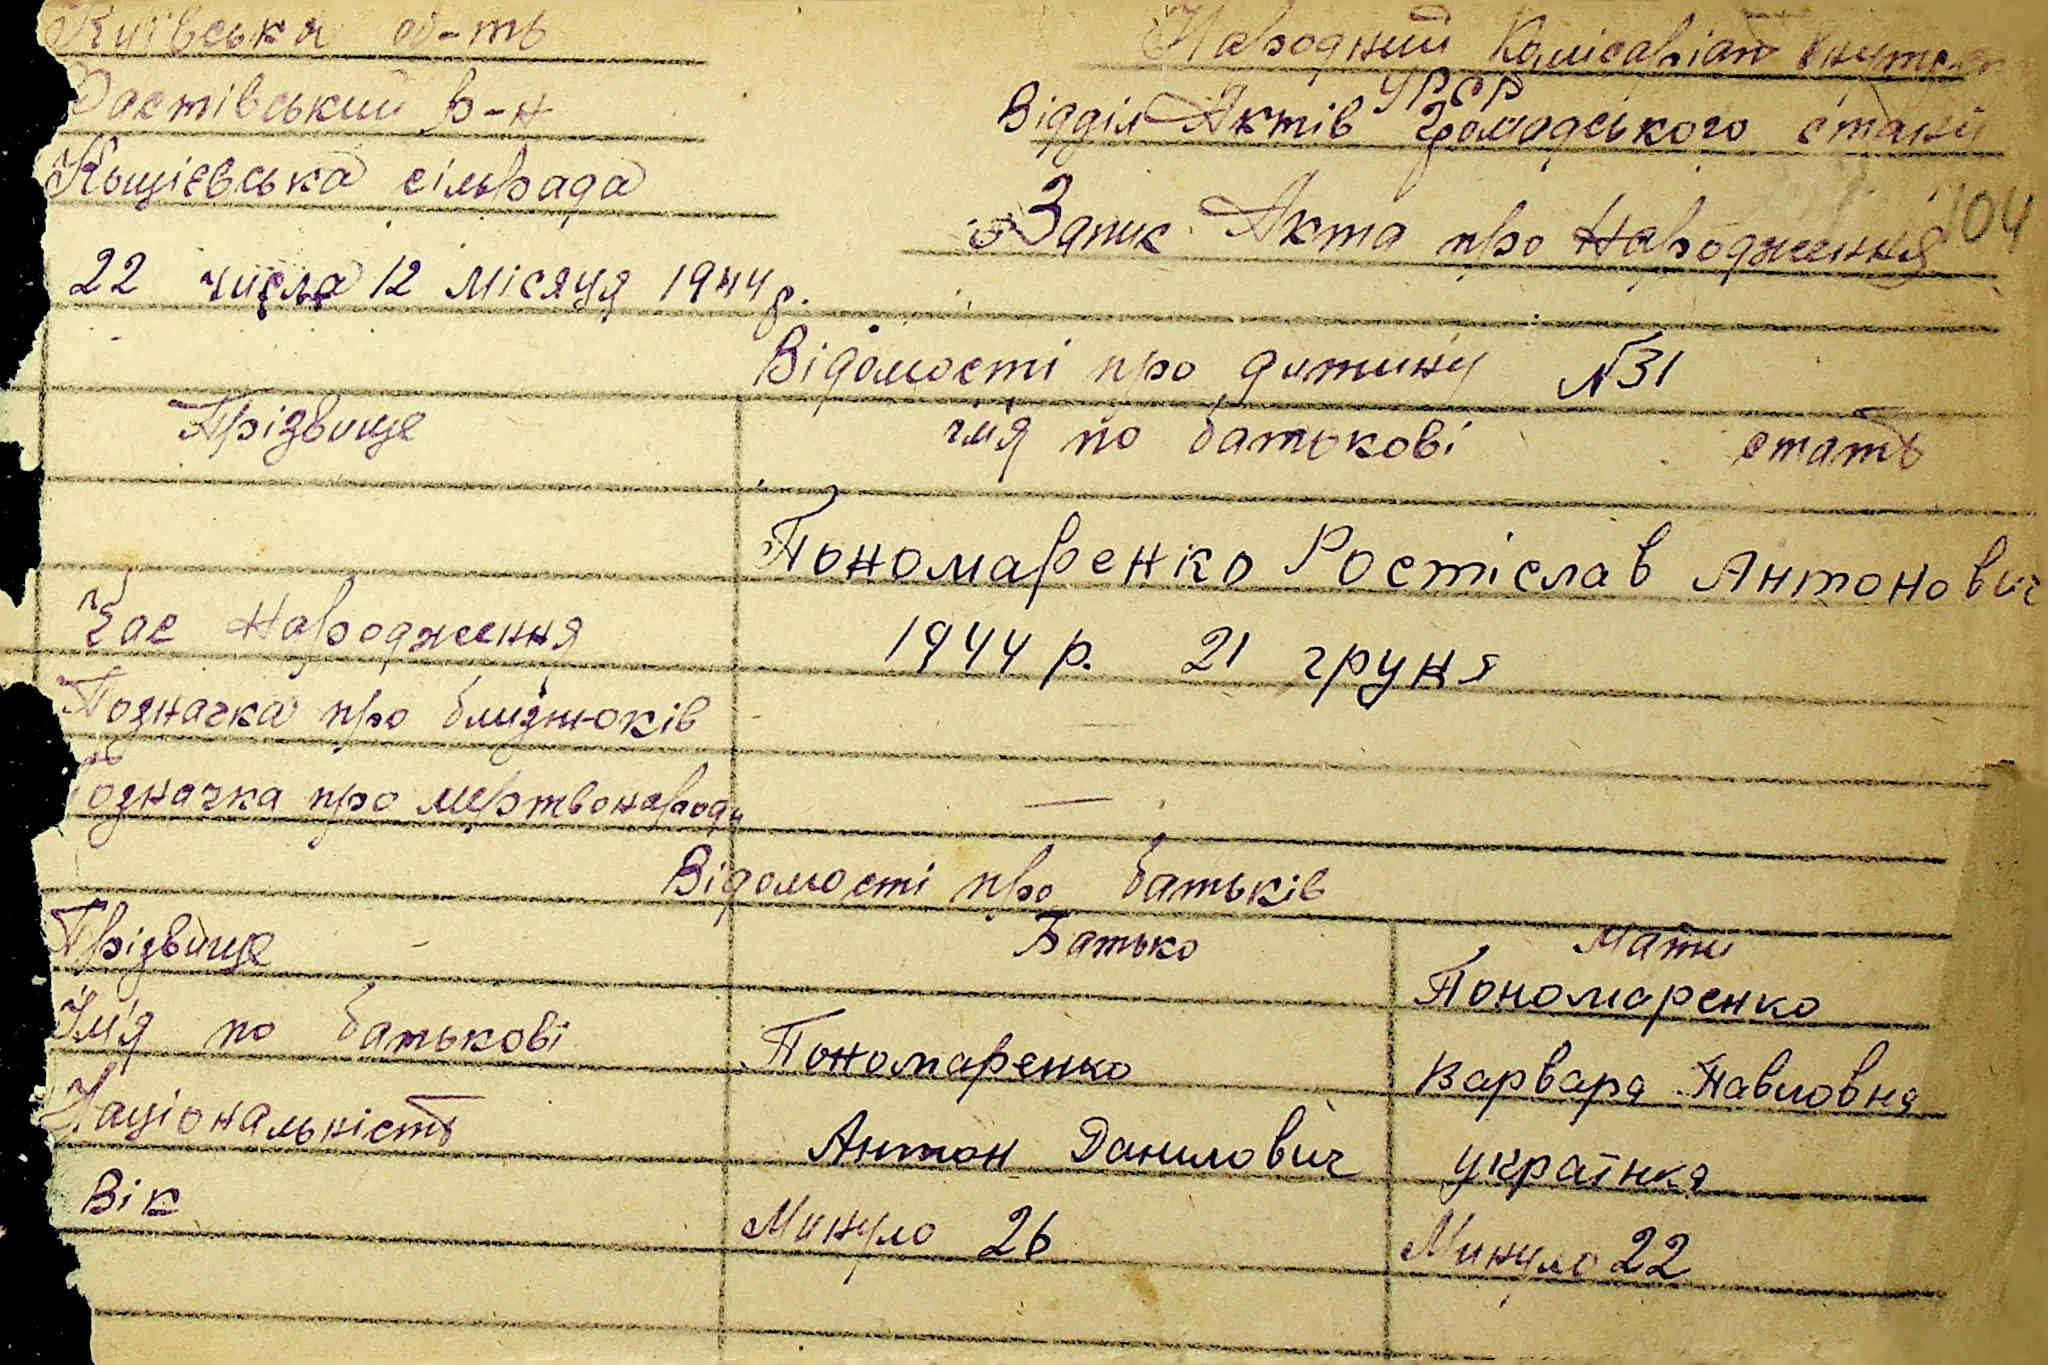 Київська об-ть
Фастівський р-н
Кощіївська сільрада
22 числа 12 місяця 1944 р.
Народний Комісаріат Внутр
УРСР
Відділ Актів Громадського стану
Запис Акта про Народження
104
Відомості про дитину №31
Прізвище ім'я по батькові стать
Пономаренко Ростіслав Антонович
Час Народження 1944 р. 21 груня
Позначка про близнюків —
Позначка про мертвонароди —
Відомості про батьків
Прізвище Батько Мати
Пономаренко
Ім'я по батькові Пономаренко Варвара Павловна
Національність Антон Данилович українка
Вік Минуло 26 Минуло 22